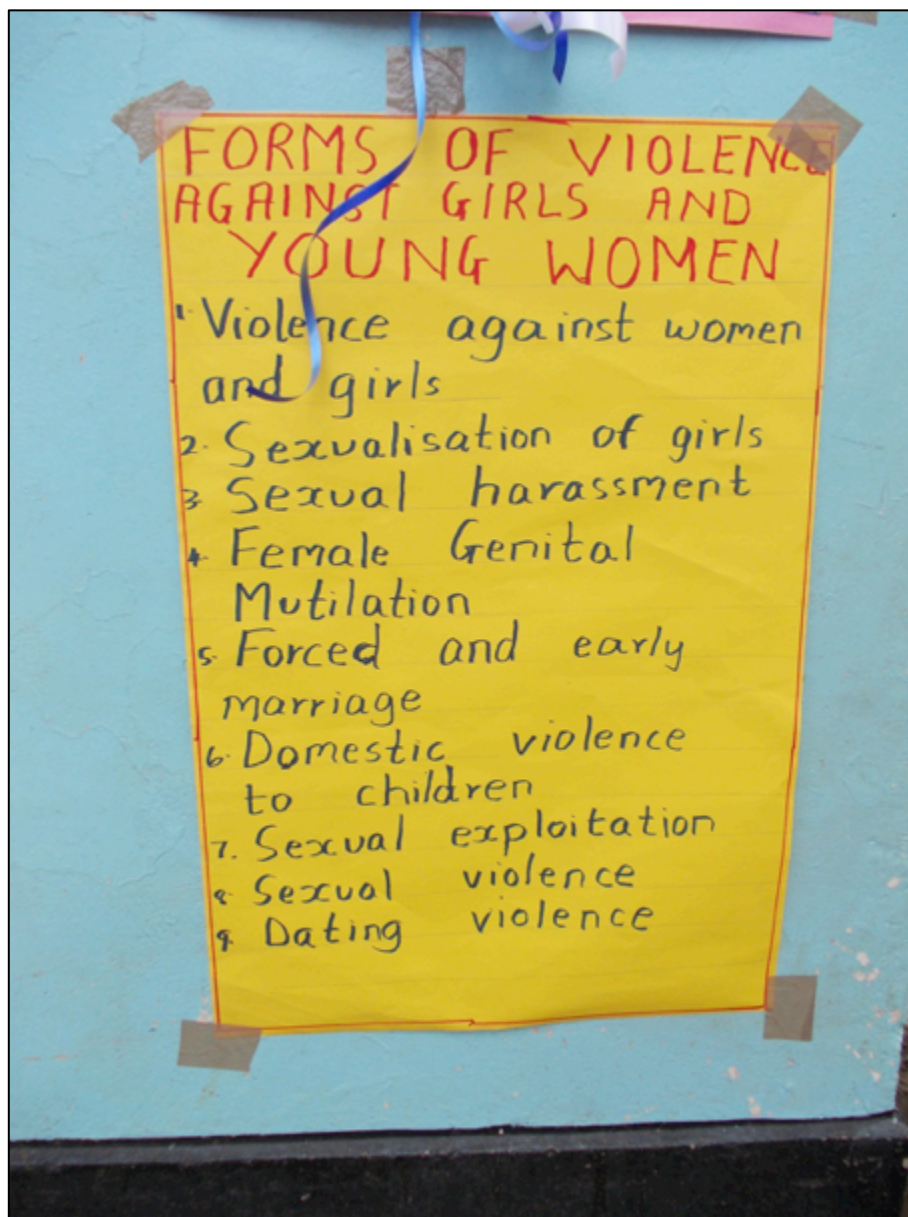 FORMS OF VIOLENCE
AGAINST GIRLS AND
YOUNG WOMEN
1. Violence against women
and girls
2. Sexualisation of girls
3. Sexual harassment
4. Female Genital
Mutilation
5. Forced and early
marriage
6. Domestic violence
to children
7. Sexual exploitation
8. Sexual violence
9. Dating violence